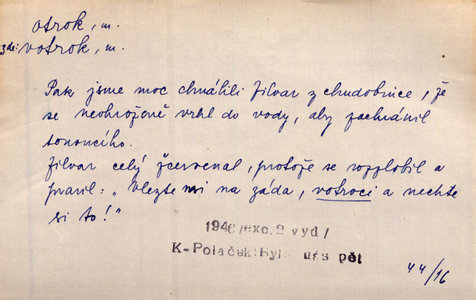 otrok, m.
zde: votrok, m.
Pak jsme moc chválili Zilvar z chudobince, že
se neohroženě vrhl do vody, aby zachránil
tonoucího.
Zilvar celý zčervenal, protože se rozzlobil a
pravil: „Vlezte mi na záda, votroci a nechte
si to!"
1946/exc. 2 vyd/
K-Poláček: Byl nás pět
44/16